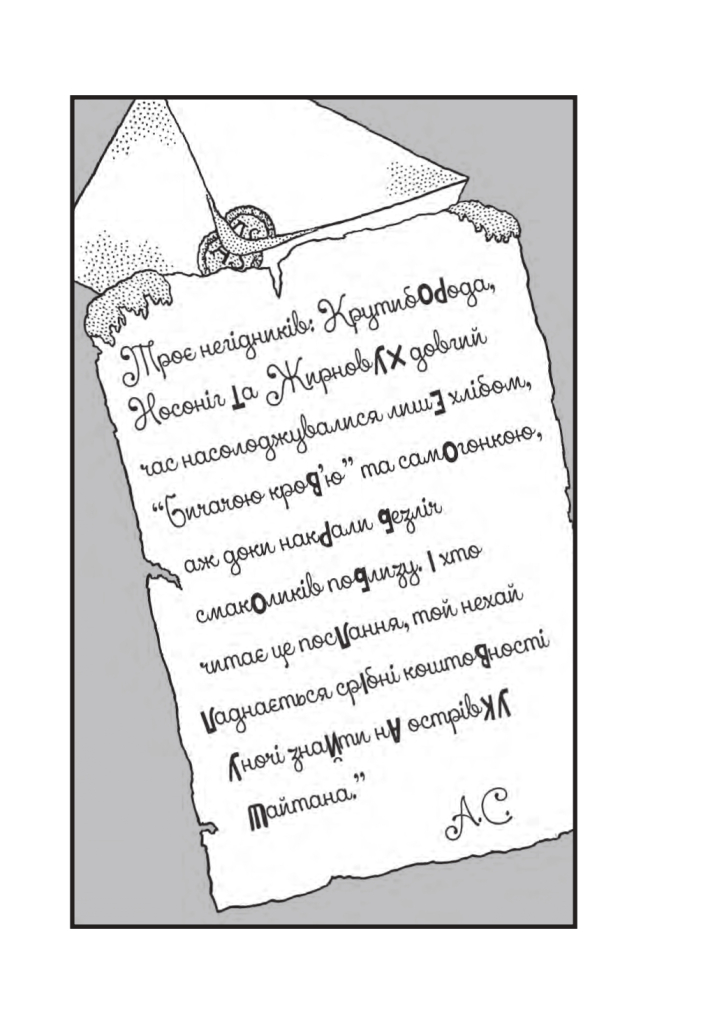 Троє негідників: Крутиборода,
Носоніг Та Жирновух довгий
час насолоджувалися лишЕ хлібом,
“Бичачою кров’ю” та самогонкою,
аж доки накрали безліч
смаколиків поблизу. І хто
читає це послання, той нехай
Ладнається срІбні коштовності
Уночі знаЙти нА острівКУ
Тайтана.”
А.С.